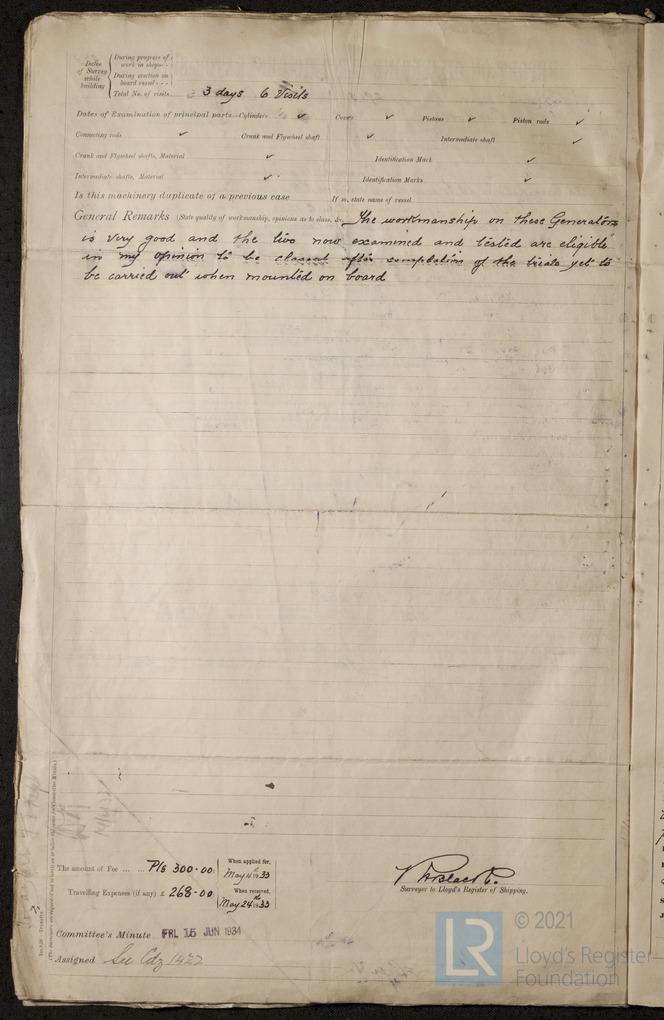 Dates of Survey while building
During progress of work in shops - -
During erection on board vessel - - -
Total No. of visits 3 days 6 Visits
Dates of Examination of principal parts—Cylinders ✓ Covers ✓ Pistons ✓ Piston rods ✓
Connecting rods ✓ Crank and Flywheel shaft ✓ Intermediate shaft ✓
Crank and Flywheel shafts, Material ✓ Identification Mark ✓
Intermediate shafts, Material ✓ Identification Marks ✓
Is this machinery duplicate of a previous case If so, state name of vessel
General Remarks (State quality of workmanship, opinions as to class, &c. The workmanship on these Generators
is very good and the two now examined and tested are eligible
in my opinion to be classed after completion of the trials yet to
be carried out when mounted on board
The amount of Fee ... ... Pts 300.00 When applied for, May 4th 1933
Travelling Expenses (if any) £ 268.00 When received, May 24th 1933
Surveyor to Lloyd's Register of Shipping.
Committee's Minute FRI. 15 JUN 1934
Assigned See Cdz 1422
© 2021
LR Lloyd's Register
Foundation